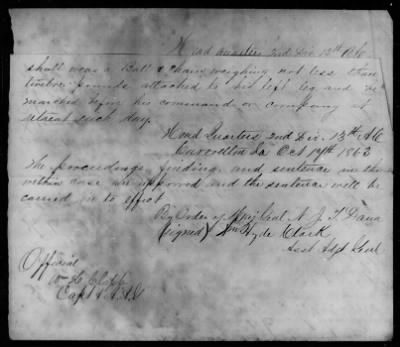 Head Quarters 2nd Div. 13th A.C.
shall wear a Ball & chain weighing not less than
twelve pounds attached to his left leg and be
marched before his command or company at
retreat each day.
Head Quarters 2nd Div. 13th A.C.
Carrollton La Oct 17th 1863
The proceedings, finding, and sentence in the
within case are approved and the sentence will be
carried into effect
By Order of Maj Genl N. J. T. Dana
(signed) Wm Hyde Clark
Asst Adjt Genl
Official
Capt A.A.A.G